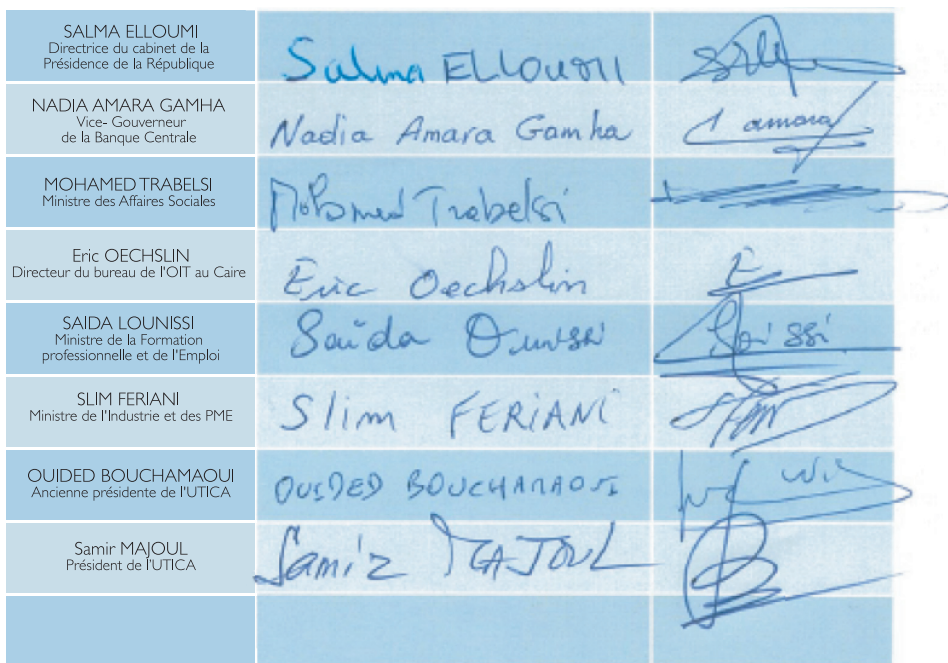 SALMA ELLOUMI
Directrice du cabinet de la
Présidence de la République
Salma ELLOUMI
NADIA AMARA GAMHA
Vice- Gouverneur
de la Banque Centrale
Nadia Amara Gamha
amara
MOHAMED TRABELSI
Ministre des Affaires Sociales
Mohamed Trabelsi
Eric OECHSLIN
Directeur du bureau de l'OIT au Caire
Eric Oechslin
E
SAIDA LOUNISSI
Ministre de la Formation
professionnelle et de l'Emploi
Saïda Ounissi
SLIM FERIANI
Ministre de l'Industrie et des PME
Slim FERIANI
OUIDED BOUCHAMAOUI
Ancienne présidente de l'UTICA
OUIDED BOUCHAMAOUI
Samir MAJOUL
Président de l'UTICA
Samir MAJOUL